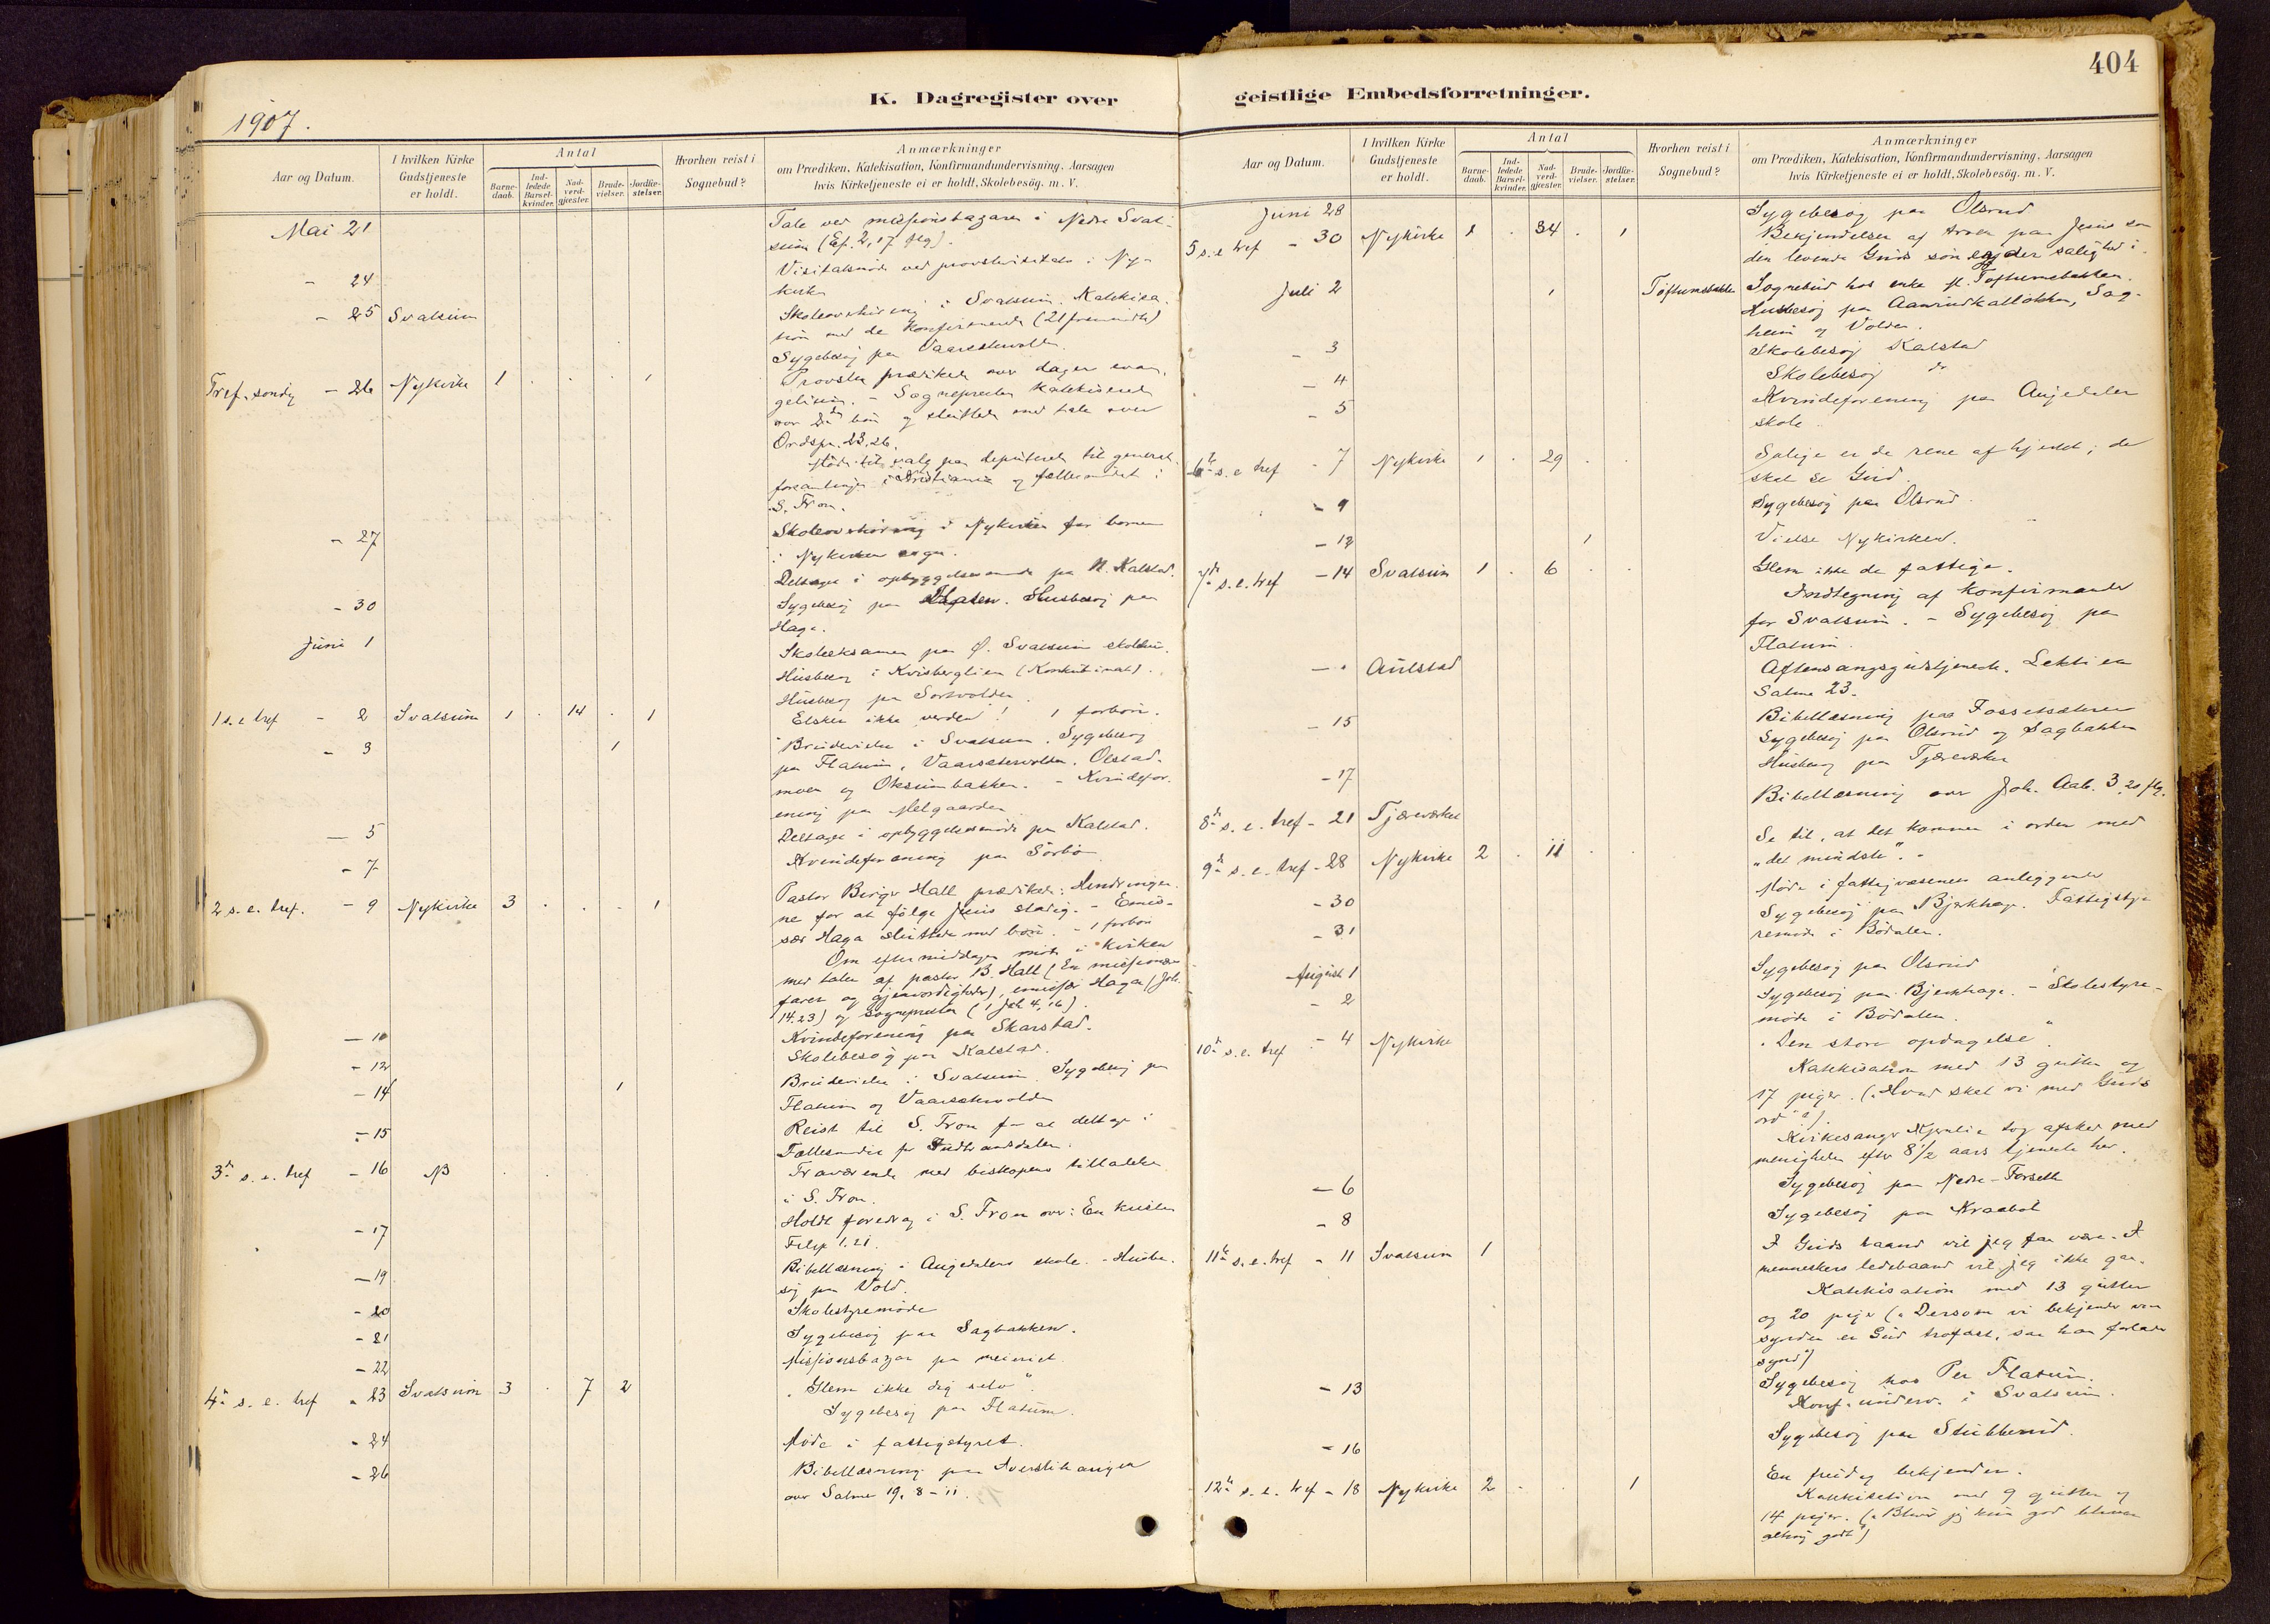 404
K. Dagregister over
geistlige Embedsforretninger.
1907.
Aar og Datum.
I hvilken Kirke
Gudstjeneste
er holdt.
Antal
Barne-
daab.
Ind-
ledede
Barsel-
kvinder.
Nad-
verd-
gjæster.
Brude-
vielser.
Jordfæ-
stelser.
Hvorhen reist i
Sognebud?
Anmærkninger
om Prædiken, Katekisation, Konfirmandundervisning, Aarsagen
hvis Kirketjeneste ei er holdt, Skolebesøg. m. V.
Mai 21
Tale ved missionsbazaren i Nedre Svat-
sum (Ef. 2, 17 flg).
- 24
Visitatsmøde ved provstevisitats i Ny-
kirke
- 25 Svatsum
Skoleovhøring i Svatsum. Katekisa-
tion med de konfirmerede (21 fremmødte)
Sygebesøg paa
Tref. søndag - 26 Nykirke 1 . . . 1
Provsten prædikede over dagens evan-
gelium. - Sognepresten katekiserede
over 2den bøn og sluttede med tale over
Ordspr. 23, 26.
Møde til valg paa deputeret til general-
forsamlingen i Kristiania og fællesmødet i
S. Fron.
- 27
Skoleovhøring i Nykirken for børnene
i Nykirken sogn.
Deltaget i opbyggelsesmøde paa N. Kalstad.
- 30
Sygebesøg paa Husbesøg paa
Haga.
Juni 1
Skoleeksamen paa Ø. Svatsum skole
Husbesøg i Kvisberglien
Husbesøg paa
1 s. e. tref - 2 Svatsum 1 . 14 . 1
Elsker ikke verden! 1 forbøn.
- 3 1
Brudevielse i Svatsum. Sygebesøg
paa Flatum, Vaarsætervolden, Olstad-
moen og Oksumbakken. - Kvindefor-
ening paa Melgaarden
- 5
Deltaget i opbyggelsesmøde paa Kalstad.
- 7
Kvindeforening paa Sørbø
2 s. e. tref. - 9 Nykirke 3 . . . 1
Pastor Birger Hall prædikede: Hindringer-
ne for at følge Jesus stadig. - Emis-
sær Haga sluttede med bøn. - 1 forbøn
Om eftermiddagen møde i kirken
med taler af pastor B. Hall (En missionærs
farer og gjenvordigheder), emissær Haga (Joh.
14.23) og sognepresten (1 Joh 4, 16).
- 10
Kvindeforening paa Skarstad.
- 12
Skolebesøg paa Kalstad.
- 14 1
Brudevielse i Svatsum. Sygebesøg paa
Flatum og Vaarsætervolden
- 15
Reist til S. Fron for at deltage i
Fællesmødet for Gudbrandsdalen.
3de s. e. tref - 16
Fraværende med biskopens tilladelse
i S. Fron.
- 17
Holdt foredrag i S. Fron over: En kristen
Filip 1.21.
- 19
Bibellæsning i Augedalens skole. - Husbe-
søg paa Vold.
- 20
Skolestyremøde
- 21
Sygebesøg paa Sagbakken.
- 22
Missionsbazar paa meieriet.
4de s. e. tref - 23 Svatsum 3 . 7 2
"Glem ikke dig selv".
Sygebesøg paa Flatum.
- 24
Møde i fattigstyret.
- 26
Bibellæsning paa
over Salme 19, 8-11.
Aar og Datum.
I hvilken Kirke
Gudstjeneste
er holdt.
Antal
Barne-
daab.
Ind-
ledede
Barsel-
kvinder.
Nad-
verd-
gjæster.
Brude-
vielser.
Jordfæ-
stelser.
Hvorhen reist i
Sognebud?
Anmærkninger
om Prædiken, Katekisation, Konfirmandundervisning, Aarsagen
hvis Kirketjeneste ei er holdt, Skolebesøg. m. V.
Juni 28
Sygebesøg paa Olsrud
5 s. e tref - 30 Nykirke 1 . 34 . 1
Bekjendelsen af troen paa Jesus som
den levende Guds søn er der salighed i.
Juli 2 1 Toftumsbakken
Sognebud hos enke st. Toftumsbakken.
Husbesøg paa Sag-
heim og Volden.
- 3
Skolebesøg Kalstad
- 4
Skolebesøg do
- 5
Kvindeforening paa Augedalen
skole
6te s. e tref - 7 Nykirke 1 . 29 . .
Salige er de rene af hjertet; de
skal se Gud.
- 9
Sygebesøg paa Olsrud.
- 12 1
Vielse Nykirken.
7de s. e. tref - 14 Svatsum 1 . 6 . .
Glem ikke de fattige.
Indtegning af konfirmander
for Svatsum. - Sygebesøg paa
Flatum.
- " Aulstad
Aftensangsgudstjeneste. Lektien
Salme 23.
- 15
Bibellæsning paa Fossesæteren
Sygebesøg paa Olsrud og Sagbakken
- 17
Husbesøg paa Tjæreværket
8de s. e. tref - 21 Tjæreværket
Bibellæsning over Joh. Aab. 3, 20 flg.
9de s. e. tref - 28 Nykirke 2 . 11 . .
Se til, at det kommer i orden med
"det mindste". -
Møde i fattigvæsenets anliggender
- 30
Sygebesøg paa Bjerkhage. Fattigsty-
remøde i Bødalen.
- 31
Sygebesøg paa Olsrud
August 1
Sygebesøg paa Bjerkhage. - Skolestyre-
- 2
møde i Bødalen.
10de s. e. tref - 4 Nykirke
"Den store opdagelse".
Katekisation med 13 gutter og
17 piger. ("Hvad skal vi med Guds
ord"?)
Kirkesanger tog afsked med
menigheden efter 8 1/2 aars tjeneste her.
- 6
Sygebesøg paa Nedre-Forseth
- 8
Sygebesøg paa Kraabøl
11te s. e. tref - 11 Svatsum 1
I Guds haand vil jeg faa være. I
menneskers ledebaand vil jeg ikke gaa.
Katekisation med 13 gutter
og 20 piger ("Dersom vi bekjender vore
synder er Gud trofast, saa han forlader
synd")
- 13
Sygebesøg hos Per Flatum.
Konf.underv. i Svatsum.
- 16
Sygebesøg paa Stubberud.
12te s. e. tref - 18 Nykirke 2 . . 1
En freidig bekjender.
Katekisation med 9 gutter og
14 piger. ("Bliver jeg kun god bliver
alting godt")